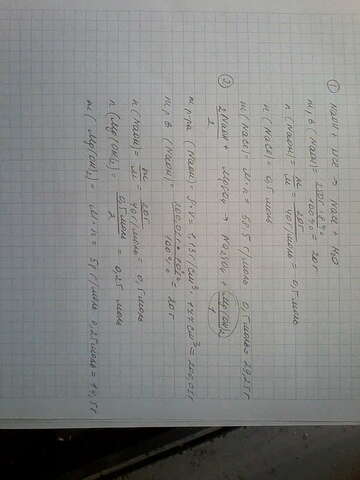 ① NaOH + HCl → NaCl + H2O
m р.в (NaOH) = 250г · 8% / 100% = 20г
n (NaOH) = m / M = 20г / 40г/моль = 0,5 моль
n (NaCl) = 0,5 моль
m (NaCl) = M · n = 58,5 г/моль · 0,5 моль = 29,25 г
② 2NaOH + MgSO4 → Na2SO4 + Mg(OH)2
2 1
m р-ра (NaOH) = ρ · v = 1,13 г/см³ · 177 см³ = 200,01 г
m р.в (NaOH) = 200,01 г · 10% / 100% = 20 г
n (NaOH) = m / M = 20г / 40г/моль = 0,5 моль
n (Mg(OH)2) = 0,5 моль / 2 = 0,25 моль
m (Mg(OH)2) = M · n = 58 г/моль · 0,25 моль = 14,5 г